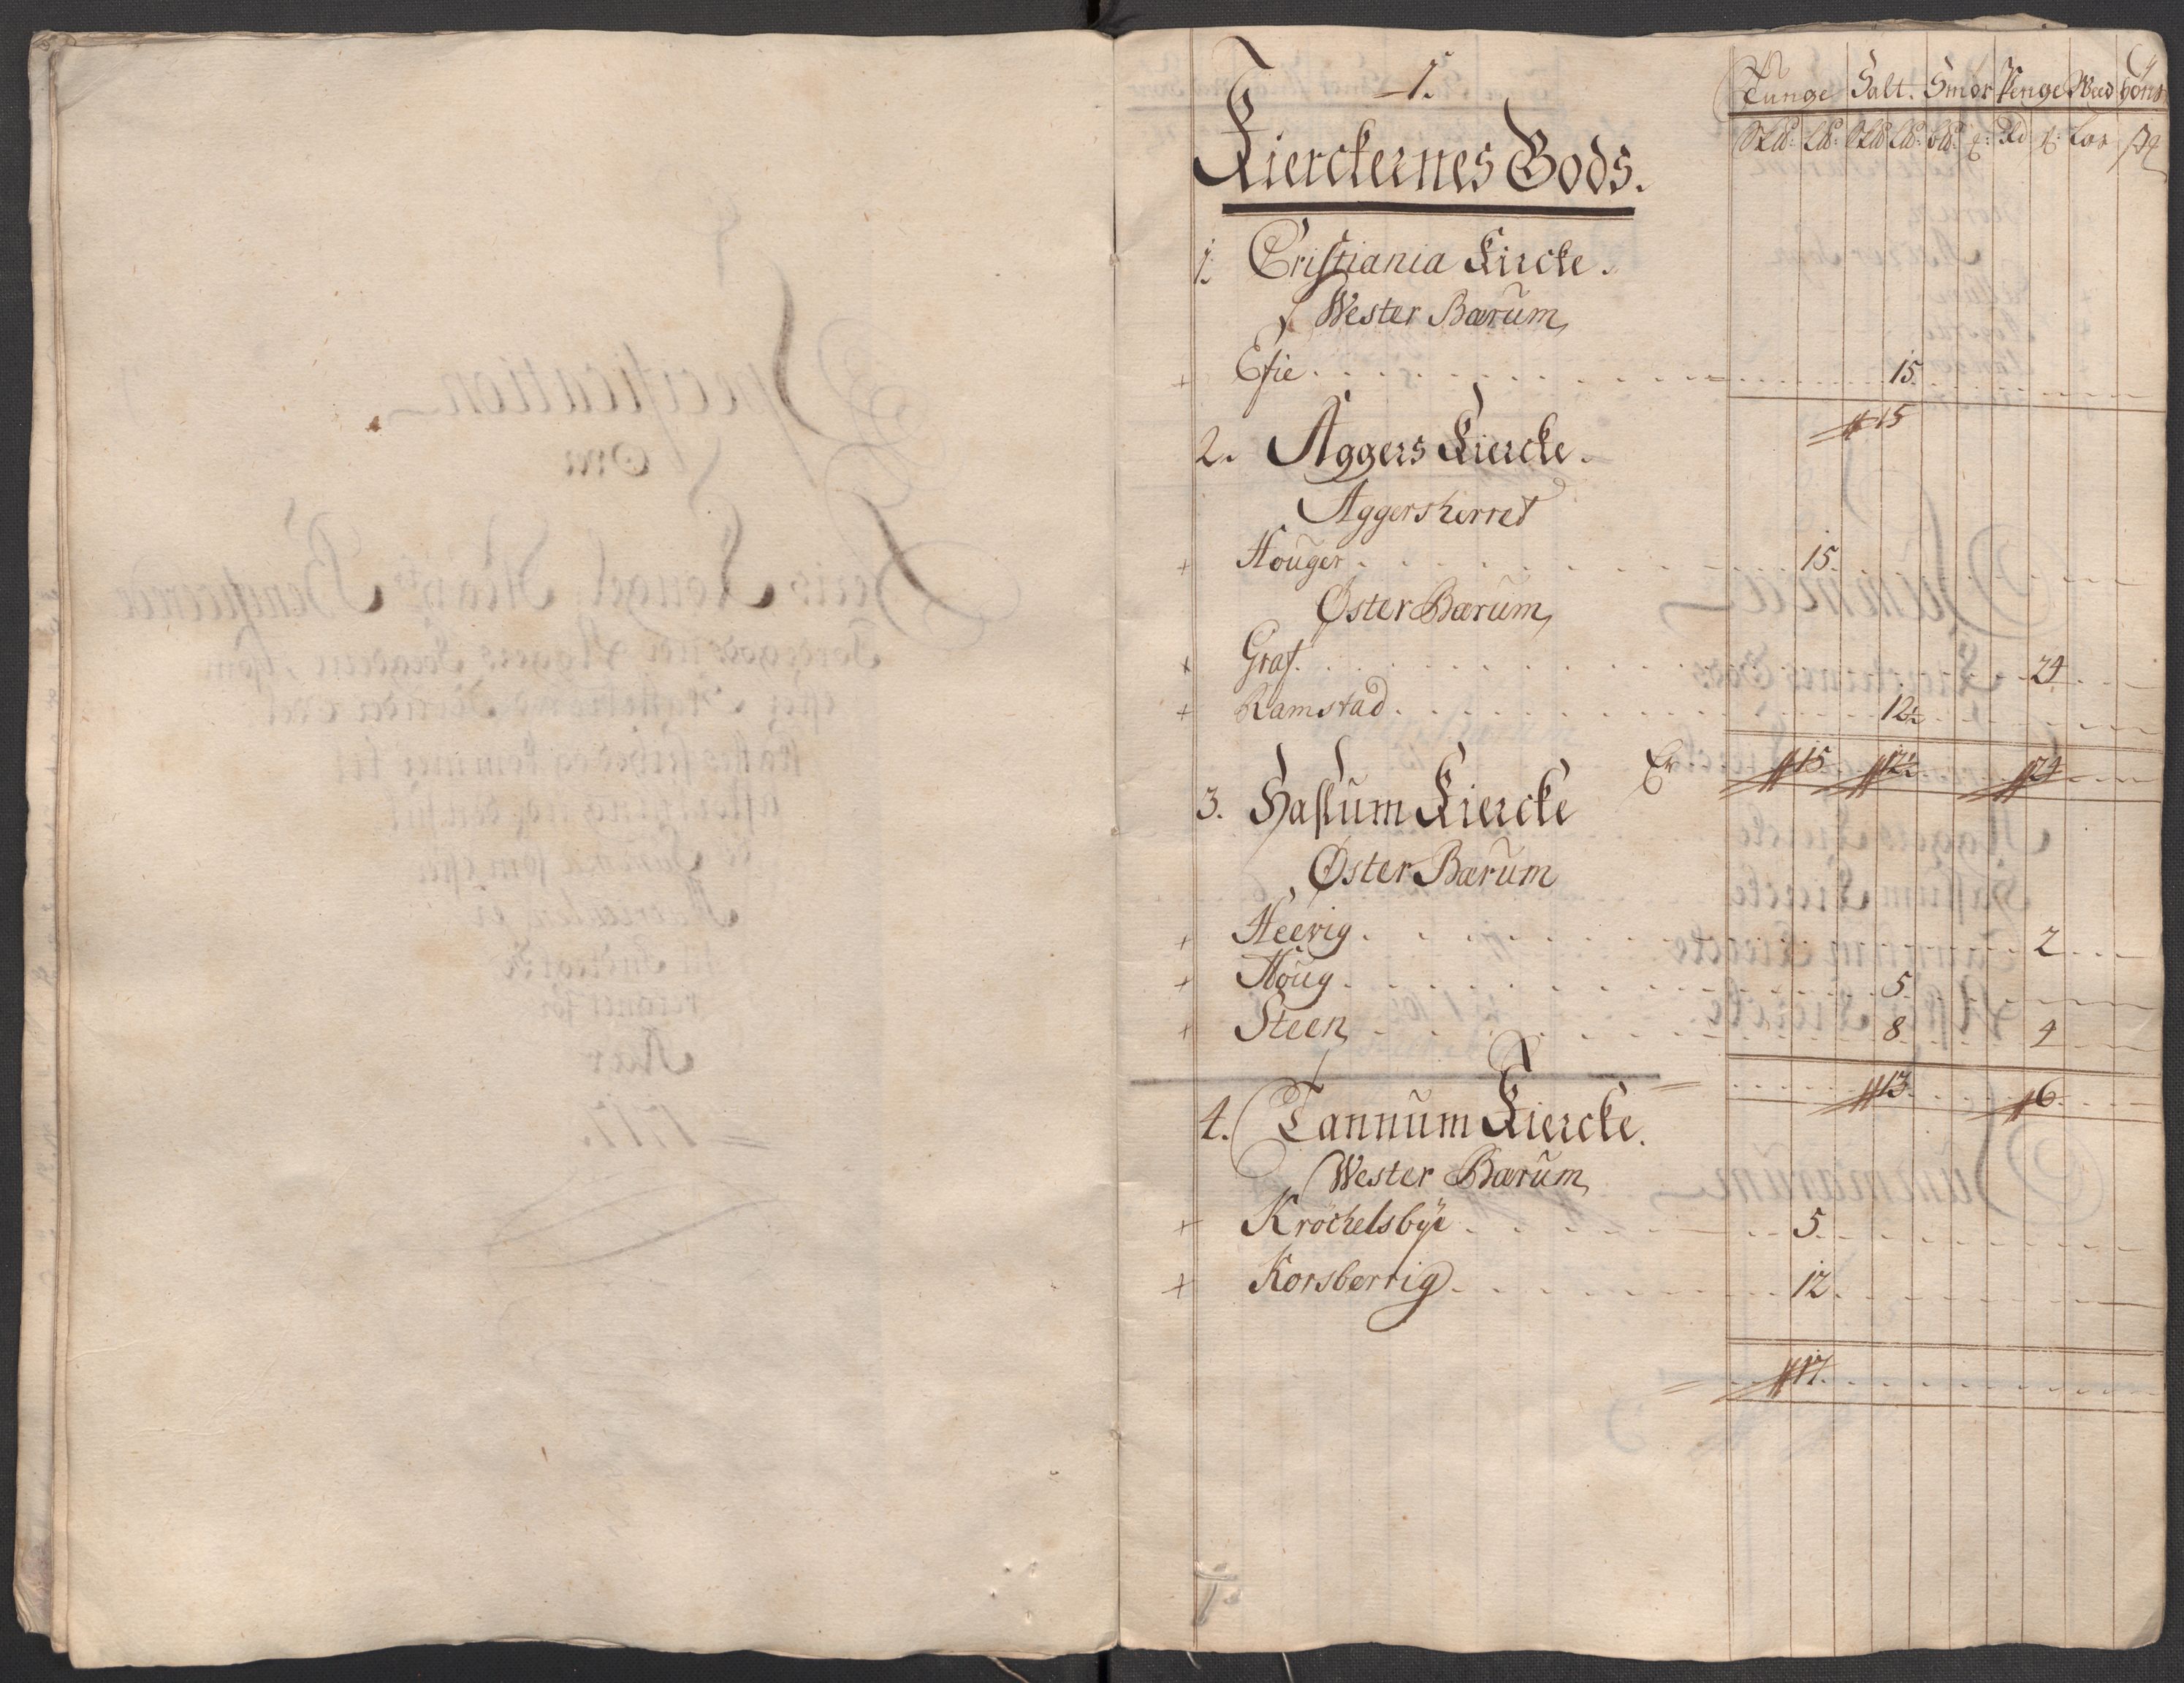 1.
Tunge Salt. Smør Penge Weed høns
Kierckernes Gods.
1. Cristiania Kircke.
Wester Bærum
+ Efie 15.
15
2. Aggers Kiercke.
Aggersherret
+ Houger 15.
Øster Bærum
+ Graf. 24
+ Ramstad 12½
Er 15. 12½ 24
3. Haslum Kiercke
Øster Bærum
+ Heerig 2
+ Houg 5.
+ Steen 8 4
13. 6.
4. Tannum Kiercke.
Wester Bærum
+ Krochelsbÿe 5.
+ Korsberrig 12
17.